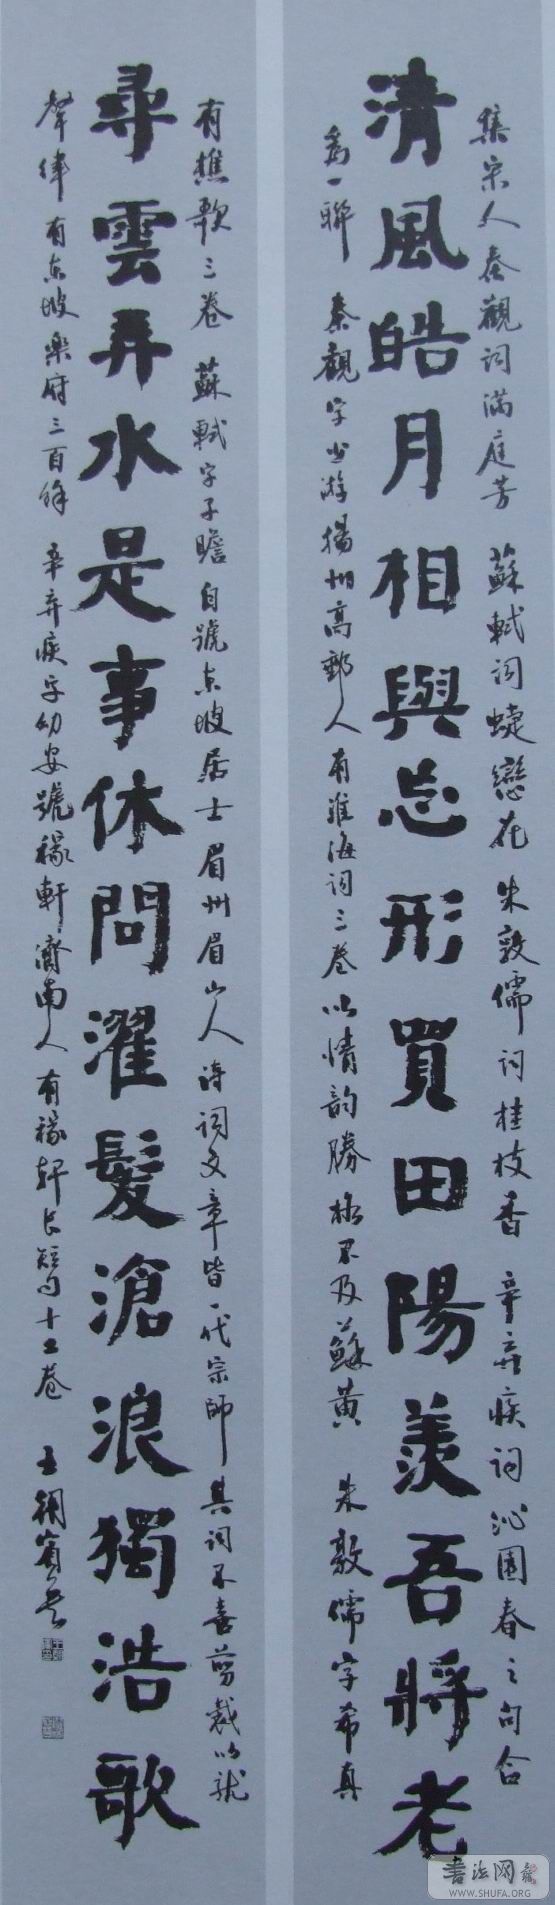 集宋人秦觀詞滿庭芳 蘇軾詞蝶戀花 朱敦儒詞桂枝香 辛棄疾詞沁園春之句合
清風皓月相與忘形買田陽羨吾將老
為一聯 秦觀字少游揚州高郵人有淮海詞三卷以情韵勝 不及蘇黃 朱敦儒字希真
有樵歌三卷 蘇軾字子瞻自號東坡居士眉州眉山人詩詞文章皆一代宗師其詞不喜剪裁以就
尋雲弄水是事休問濯髮滄浪獨浩歌
聲律有東坡樂府三百餘 辛弃疾字幼安號稼軒濟南人有稼軒長短句十二卷 王
書法网
WWW.SHUFA.ORG